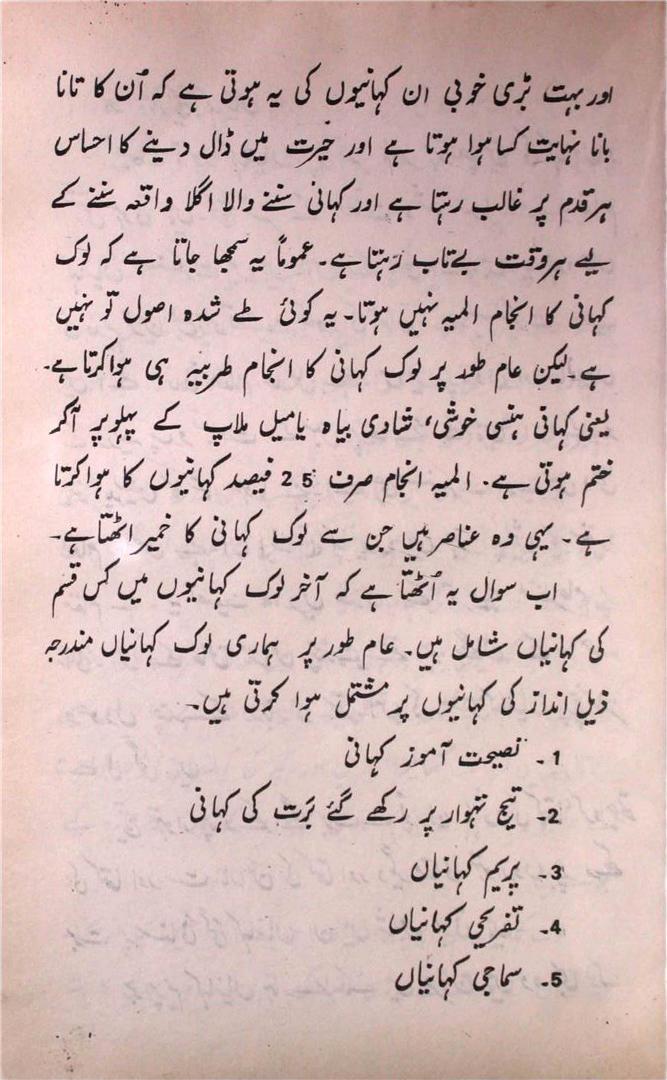 اور بہت بڑی خوبی ان کہانیوں کی یہ ہوتی ہے کہ اُن کا تانا
بانا نہایت کسا ہوا ہوتا ہے اور حیرت میں ڈال دینے کا احساس
ہر قدم پر غالب رہتا ہے اور کہانی سننے والا اگلا واقعہ سننے کے
لیے ہر وقت بے تاب رہتا ہے۔ عموماً یہ سمجھا جاتا ہے کہ لوک
کہانی کا انجام المیہ نہیں ہوتا۔ یہ کوئی طے شدہ اصول تو نہیں
ہے لیکن عام طور پر لوک کہانی کا انجام طربیہ ہی ہوا کرتا ہے۔
یعنی کہانی ہنسی خوشی، شادی بیاہ یا میل ملاپ کے پہلو پر آکر
ختم ہوتی ہے۔ المیہ انجام صرف 25 فیصد کہانیوں کا ہوا کرتا
ہے۔ یہی وہ عناصر ہیں جن سے لوک کہانی کا خمیر اٹھتا ہے۔
اب سوال یہ اُٹھتا ہے کہ آخر لوک کہانیوں میں کس قسم
کی کہانیاں شامل ہیں۔ عام طور پر ہماری لوک کہانیاں مندرجہ
ذیل انداز کی کہانیوں پر مشتمل ہوا کرتی ہیں۔
1۔ نصیحت آموز کہانی
2۔ تیج تہوار پر رکھے گئے بَرت کی کہانی
3۔ پریم کہانیاں
4۔ تفریحی کہانیاں
5۔ سماجی کہانیاں